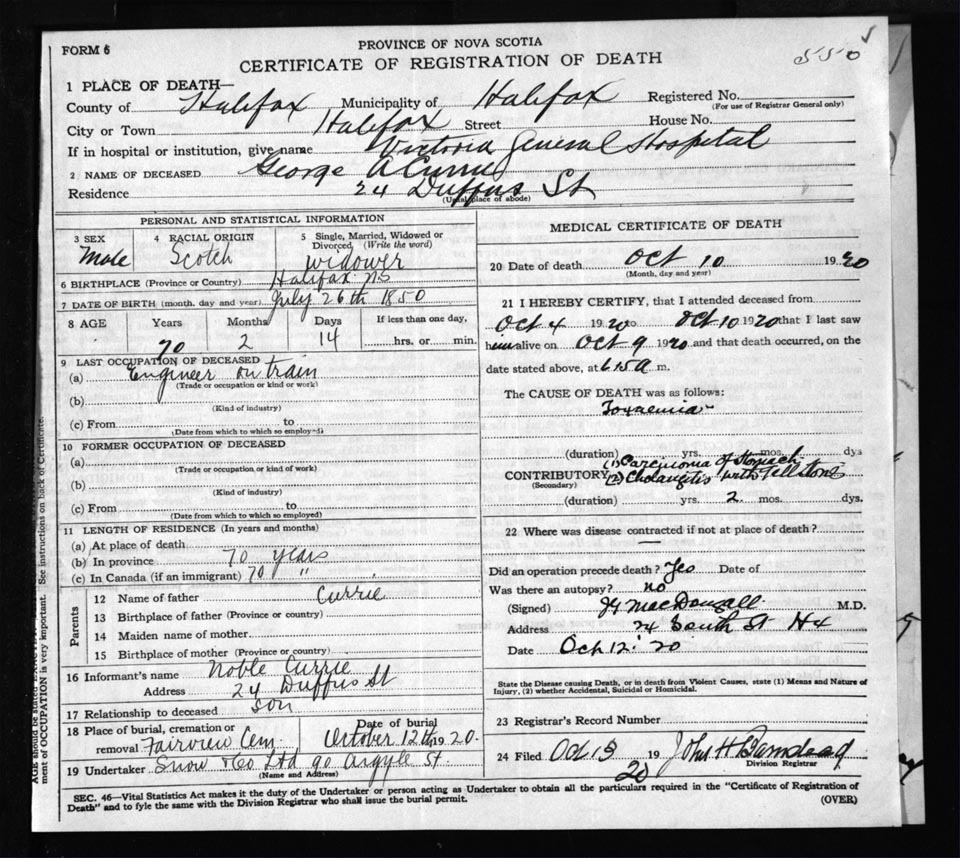 FORM 6
PROVINCE OF NOVA SCOTIA
550
CERTIFICATE OF REGISTRATION OF DEATH
1 PLACE OF DEATH—
County of Halifax Municipality of Halifax Registered No.
(For use of Registrar General only)
City or Town Halifax Street House No.
If in hospital or institution, give name Victoria General Hospital
2 NAME OF DECEASED George A Currie
Residence 24 Duffus St
(Usual place of abode)
PERSONAL AND STATISTICAL INFORMATION
3 SEX
Male
4 RACIAL ORIGIN
Scotch
5 Single, Married, Widowed or
Divorced (Write the word)
widower
6 BIRTHPLACE (Province or Country) Halifax NS
7 DATE OF BIRTH (month, day and year) July 26th 1850
8 AGE
Years
70
Months
2
Days
14
If less than one day,
hrs. or min.
9 LAST OCCUPATION OF DECEASED
(a) Engineer on train
(Trade or occupation or kind or work)
(b)
(Kind of industry)
(c) From to
(Date from which to which so employed)
10 FORMER OCCUPATION OF DECEASED
(a)
(Trade or occupation or kind of work)
(b)
(Kind of industry)
(c) From to
(Date from which to which so employed)
11 LENGTH OF RESIDENCE (In years and months)
(a) At place of death
(b) In province 70 years
(c) In Canada (if an immigrant) 70 "
Parents
12 Name of father Currie
13 Birthplace of father (Province or country)
14 Maiden name of mother
15 Birthplace of mother (Province or country)
16 Informant's name Noble Currie
Address 24 Duffus St
17 Relationship to deceased son
18 Place of burial, cremation or
removal Fairview Cem.
Date of burial
October 12th 1920.
19 Undertaker Snow & Co Ltd 90 Argyle St.
(Name and Address)
MEDICAL CERTIFICATE OF DEATH
20 Date of death Oct 10 1920
(Month, day and year)
21 I HEREBY CERTIFY, that I attended deceased from
Oct 4 1920 to Oct 10 1920 that I last saw
him alive on Oct 9 1920 and that death occurred, on the
date stated above, at 6.15 a m.
The CAUSE OF DEATH was as follows:
Toxaemia
(duration) yrs. mos. dys
CONTRIBUTORY
(Secondary)
(1) Carcinoma of Stomach
(2) Cholangitis with Gall stones
(duration) yrs. 2 mos. dys.
22 Where was disease contracted if not at place of death?
—
Did an operation precede death? Yes Date of
Was there an autopsy? no
(Signed) MacDougall M.D.
Address 24 South St Hx
Date Oct 12 '20
State the Disease causing Death, or in death from Violent Causes, state (1) Means and Nature of
Injury, (2) whether Accidental, Suicidal or Homicidal.
23 Registrar's Record Number
24 Filed Oct 13 1920 John H Barnstead
Division Registrar
SEC. 46—Vital Statistics Act makes it the duty of the Undertaker or person acting as Undertaker to obtain all the particulars required in the "Certificate of Registration of
Death" and to fyle the same with the Division Registrar who shall issue the burial permit.
(OVER)
ment of OCCUPATION is very important. See instructions on back of Certificate.